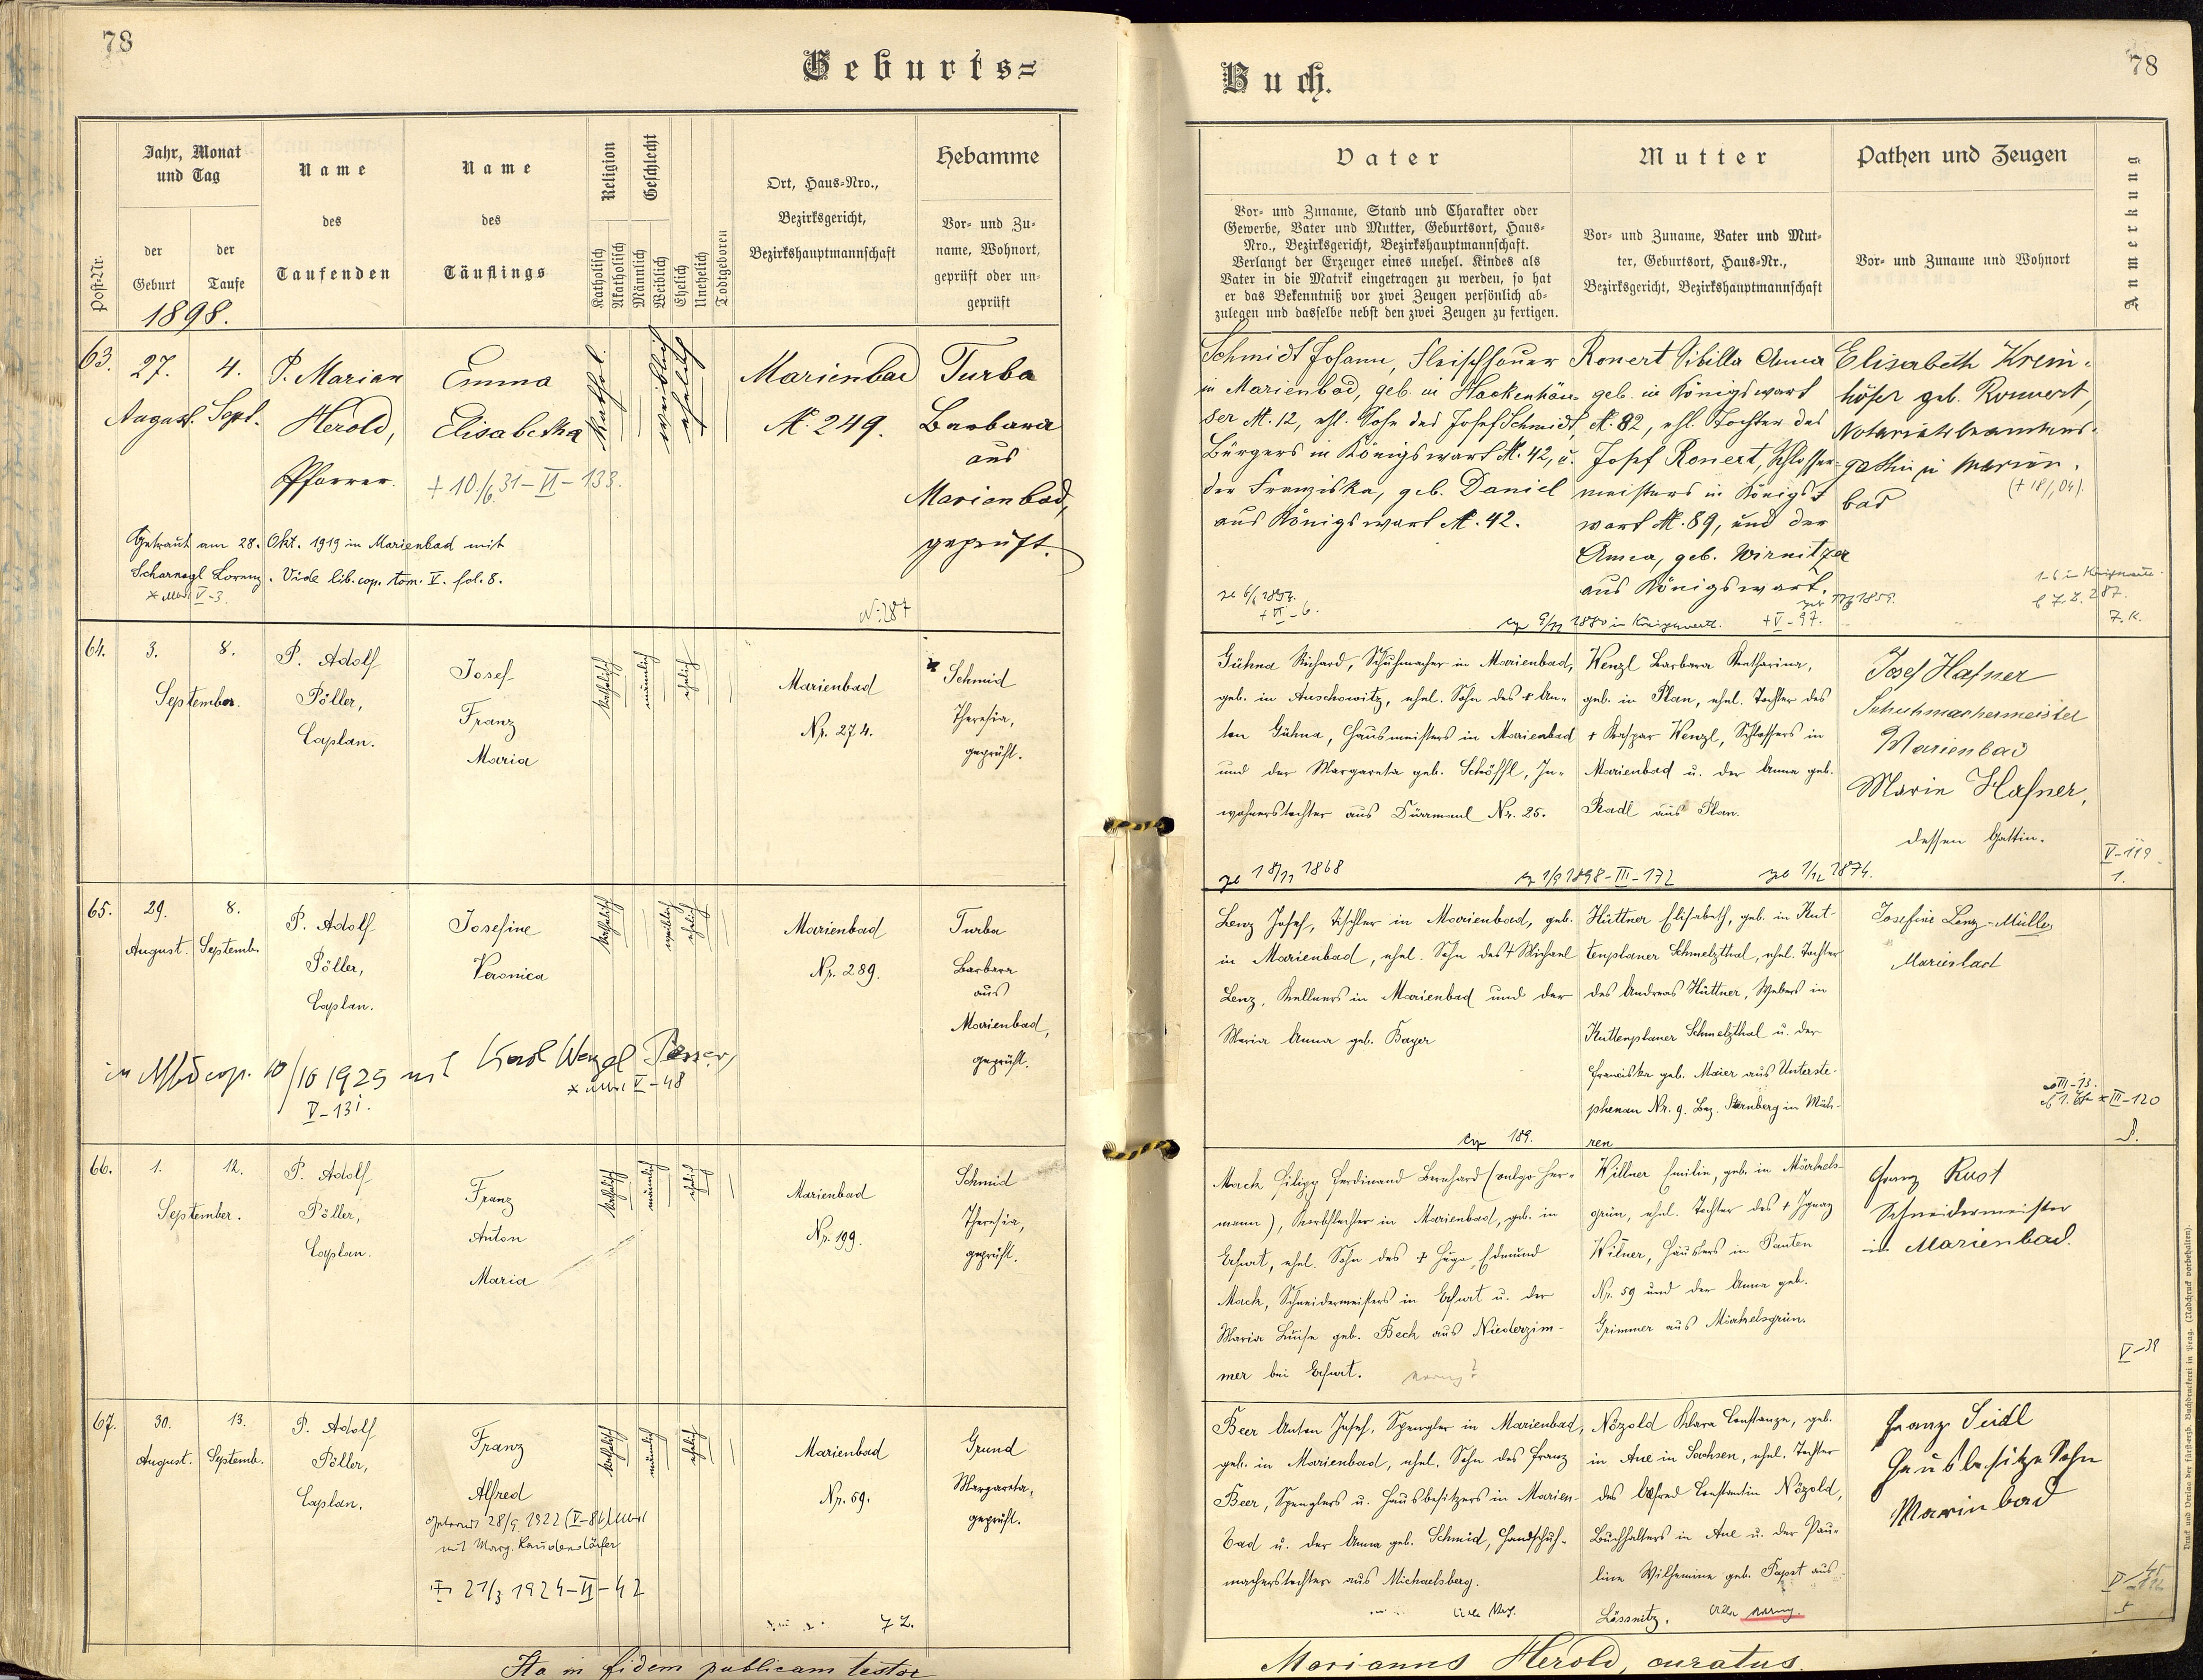 78
Geburts=
Jahr, Monat
und Tag
Name
Name
Religion
Geschlecht
Ort, Haus=Nro.,
Bezirksgericht,
Bezirkshauptmannschaft
Hebamme
Post=Nr.
der
Geburt
der
Taufe
des
Taufenden
des
Täuflings
Katholisch
Akatholisch
Männlich
Weiblich
Ehelich
Unehelich
Todtgeboren
Vor= und Zu=
name, Wohnort,
geprüft oder un=
geprüft
1898.
63.
27.
August.
4.
Sept.
P. Marian
Herold,
Pfarrer.
Emma
Elisabetha
+ 10/6 31 - VI - 133.
kathol.
weiblich
ehelich
Marienbad
N. 249.
Turba
Barbara
aus
Marienbad,
geprüft.
Getraut am 28. Okt. 1919 in Marienbad mit
Scharnagl Lorenz. Vide lib. cop. tom. V. fol. 8.
V-3.
N: 287
64.
3.
8.
September.
P. Adolf
Pöller,
Caplan.
Josef
Franz
Maria
katholisch
männlich
ehelich
Marienbad
Nr. 274.
Schmid
Theresia,
geprüft.
65.
29.
August.
8.
Septemb.
P. Adolf
Pöller,
Caplan.
Josefine
Veronica
katholisch
weiblich
ehelich
Marienbad
Nr. 289.
Turba
Barbara
aus
Marienbad,
geprüft.
cop. 10/10 1925 mit Karl Wenzel
V-48
V-131.
66.
1.
12.
September.
P. Adolf
Pöller,
Caplan.
Franz
Anton
Maria
katholisch
männlich
ehelich
Marienbad
Nr. 199.
Schmid
Theresia,
geprüft.
67.
30.
August.
13.
Septemb.
P. Adolf
Pöller,
Caplan.
Franz
Alfred
getraut 28/9. 1922
mit Marg.
21/3 1924-II-42
katholisch
männlich
ehelich
Marienbad
Nr. 59.
Grund
Margareta,
geprüft.
Ita in fidem publicam testor
Buch.
78
Vater
Mutter
Pathen und Zeugen
Anmerkung
Vor= und Zuname, Stand und Charakter oder
Gewerbe, Vater und Mutter, Geburtsort, Haus=
Nro., Bezirksgericht, Bezirkshauptmannschaft.
Verlangt der Erzeuger eines unehel. Kindes als
Vater in die Matrik eingetragen zu werden, so hat
er das Bekenntniß vor zwei Zeugen persönlich ab=
zulegen und dasselbe nebst den zwei Zeugen zu fertigen.
Vor= und Zuname, Vater und Mut=
ter, Geburtsort, Haus=Nr.,
Bezirksgericht, Bezirkshauptmannschaft
Vor= und Zuname und Wohnort
Schmidt Johann, Fleischhauer
in Marienbad, geb. in Hackenhäu=
ser N. 12, ehl. Sohn des Josef Schmidt,
Bürgers in Königswart N. 42, u.
der Franziska, geb. Daniel
aus Königswart N. 42.
Ronert Sibilla Anna
geb. in Königswart
N. 82, ehl. Tochter des
Josef Ronert, Schlosser=
meisters in Königs=
wart N. 89, und der
Anna, geb. Wirnitzer
aus Königswart.
Elisabeth Krem=
höfer geb. Ronnert,
Notariatsbeamtens=
gattin in Marien=
bad
1880 in Königswart. + V - 97.
Z. 287.
Gühna Richard, Schuhmacher in Marienbad,
geb. in Auschowitz, ehel. Sohn des + An=
ton Gühna, Hausmeisters in Marienbad
und der Margareta geb. Schöffl, In=
wohnerstochter aus Dürrmaul Nr. 25.
Wenzl Barbara Katharina,
geb. in Plan, ehel. Tochter des
+ Kaspar Wenzl, Schlossers in
Marienbad u. der Anna geb.
Radl aus Plan.
Josef Hafner
Schuhmachermeister
Marienbad
Marie Hafner,
dessen Gattin.
geb 18/11 1868
1/9 1898-III-172
geb 1/12 1874.
V-119
1.
Lenz Josef, Tischler in Marienbad, geb.
in Marienbad, ehel. Sohn des + Michael
Lenz, Kellners in Marienbad und der
Maria Anna geb. Bayer
Hüttner Elisabeth, geb. in Kut=
tenplaner Schmelzthal, ehel. Tochter
des Andreas Hüttner, Webers in
Kuttenplaner Schmelzthal u. der
Franciska geb. Maier aus Unterste=
phenau Nr. 9. Bez. Sternberg in Mäh=
ren
Josefine Lenz-Müller
Marienbad
III-120
189.
Mack Filipp Ferdinand Bernhard (vulgo Her=
mann), Korbflechter in Marienbad, geb. in
Erfurt, ehel. Sohn des + Hugo Edmund
Mack, Schneidermeisters in Erfurt u. der
Maria Luise geb. Beck aus Niederzim=
mer bei Erfurt.
Willner Emilie, geb. in Michels=
grün, ehel. Tochter des + Ignaz
Wilner, Häuslers in Panten
Nr. 59 und der Anna geb.
Grimmer aus Michelsgrün.
Franz Rust
Schneidermeister
in Marienbad.
V-39
Beer Anton Josef, Spengler in Marienbad,
geb. in Marienbad, ehel. Sohn des Franz
Beer, Spenglers u. Hausbesitzers in Marien=
bad u. der Anna geb. Schmid, Handschuh=
macherstochter aus Michaelsberg.
Nözold Klara Constanze, geb.
in Aue in Sachsen, ehel. Tochter
des Alfred Constantin Nözold,
Buchhalters in Aue u. der Pau=
line Wilhemine geb. Papst aus
Lössnitz.
Franz Seidl
Hausbesitzersohn
Marienbad
Marianus Herold, curatus.
Druck und Verlag der fürst-erzb. Buchdruckerei in Prag. (Nachdruck vorbehalten).